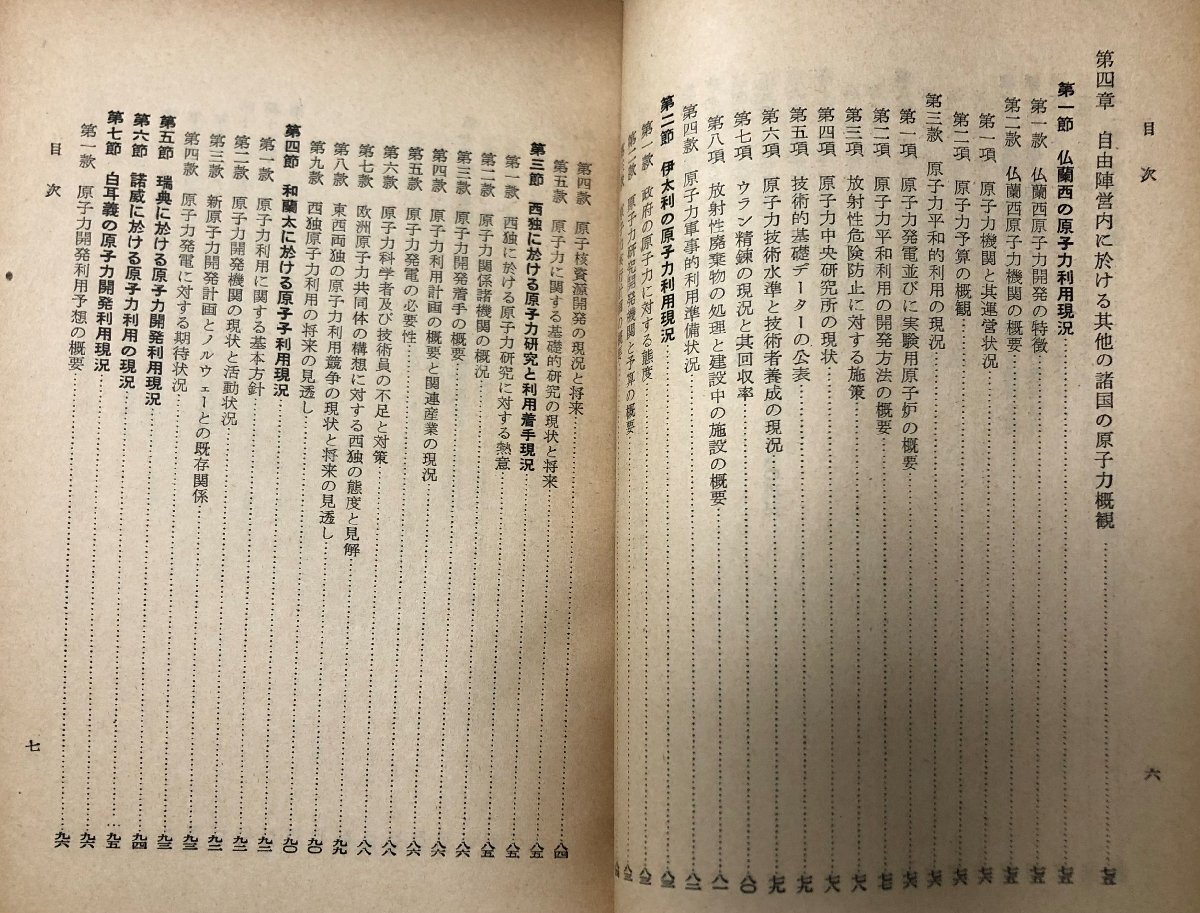 目次
第四章 自由陣営内に於ける其他の諸国の原子力概観
第一節 仏蘭西の原子力利用現況
第一款 仏蘭西原子力開発の特徴
第二款 仏蘭西原子力機関の概要
第一項 原子力機関と其運営状況
第二項 原子力予算の概観
第三款 原子力平和的利用の現況
第一項 原子力発電並びに実験用原子炉の概要
第二項 原子力平和利用の開発方法の概要
第三項 放射性危険防止に対する施策
第四項 原子力中央研究所の現状
第五項 技術的基礎データーの公表
第六項 原子力技術水準と技術者養成の現況
第七項 ウラン精錬の現況と其回収率 八〇
第八項 放射性廃棄物の処理と建設中の施設の概要 八一
第四款 原子力軍事的利用準備状況
第二節 伊太利の原子力利用現況
第一款 政府の原子力に対する態度
第二款 原子力研究開発機関と予算の概要
六
第四款 原子核資源開発の現況と将来 八四
第五款 原子力に関する基礎的研究の現状と将来 八五
第三節 西独に於ける原子力研究と利用着手現況 八五
第一款 西独に於ける原子力研究に対する熱意 八五
第二款 原子力関係諸機関の概況 八五
第三款 原子力開発着手の概要 八六
第四款 原子力利用計画の概要と関連産業の現況 八六
第五款 原子力発電の必要性 八六
第六款 原子力科学者及び技術員の不足と対策 八八
第七款 欧洲原子力共同体の構想に対する西独の態度と見解 八八
第八款 東西両独の原子力利用競争の現状と将来の見透し
第九款 西独原子力利用の将来の見透し 九〇
第四節 和蘭太に於ける原子子利用現況 九〇
第一款 原子力利用に関する基本方針
第二款 原子力開発機関の現状と活動状況
第三款 新原子力開発計画とノルウェーとの既存関係
第四款 原子力発電に対する期待状況
第五節 瑞典に於ける原子力開発利用現況
第六節 諾威に於ける原子力利用の現況 九四
第七節 白耳義の原子力開発利用現況 九五
第一款 原子力開発利用予想の概要 九六
目次
七